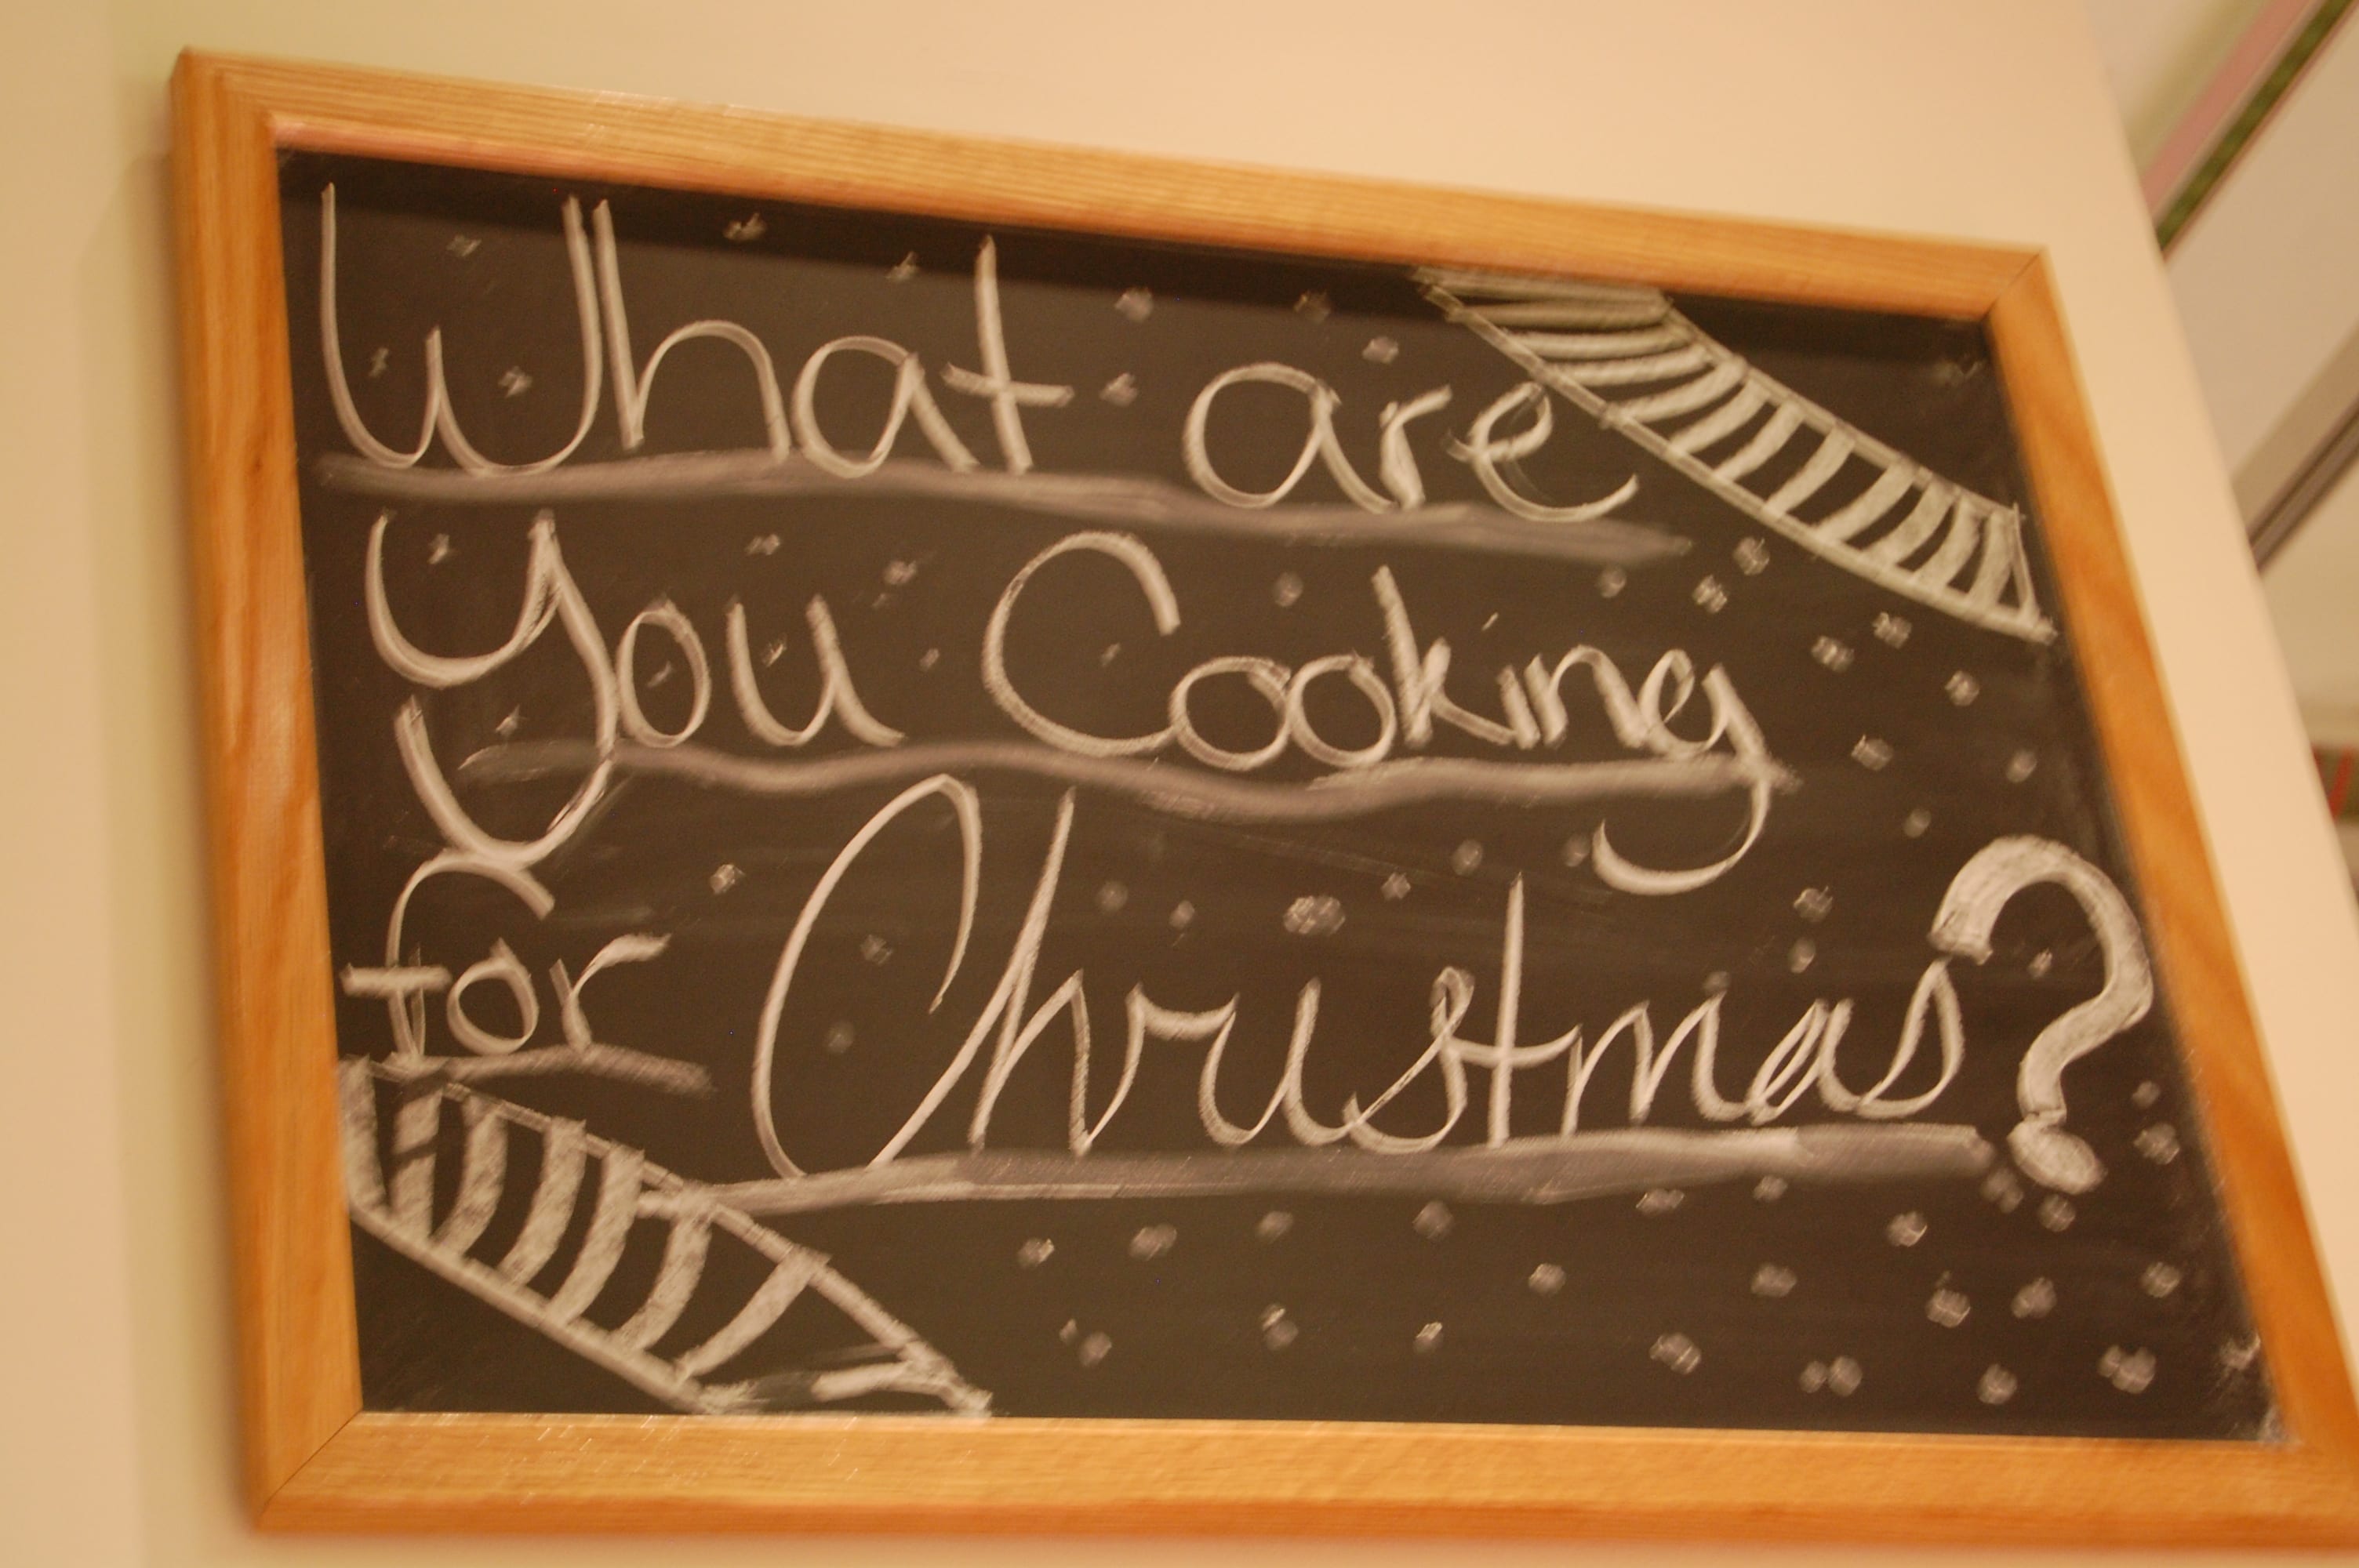 What are
You Cooking
for Christmas?